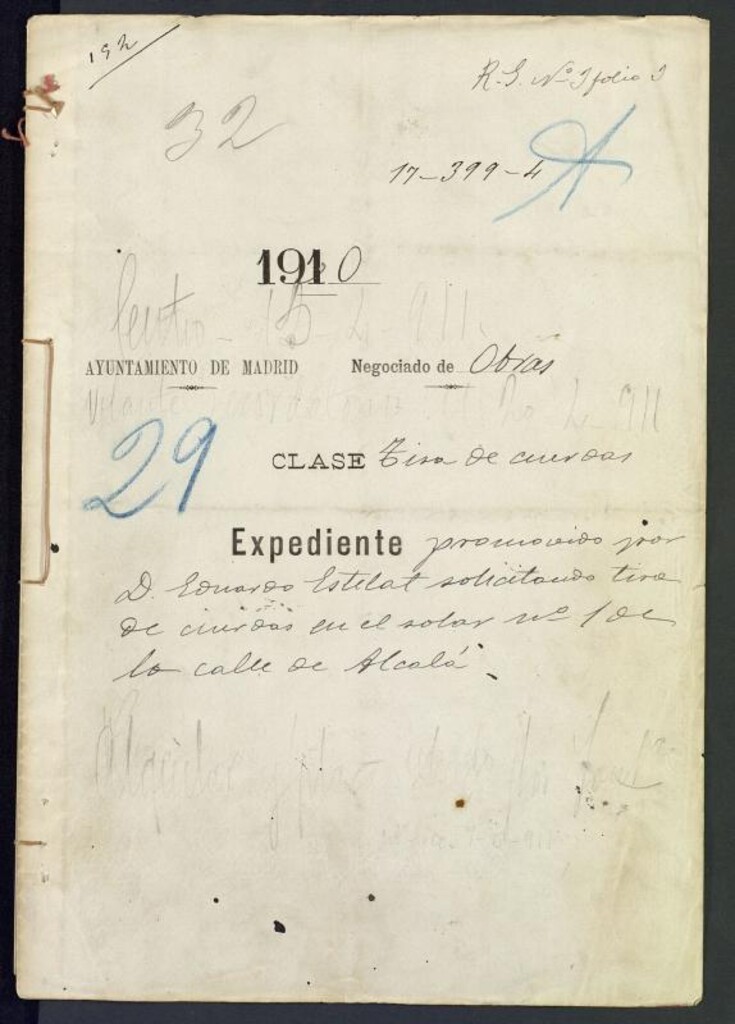 192
R.G. Nº 3 folio 3
32
17-399-4 A
1910
15-2-911
AYUNTAMIENTO DE MADRID Negociado de Obras
20 2-911
29
CLASE Tira de cuerdas
Expediente promovido por
D. Eduardo Estelat solicitando tira
de cuerdas en el solar nº 1 de
la calle de Alcalá